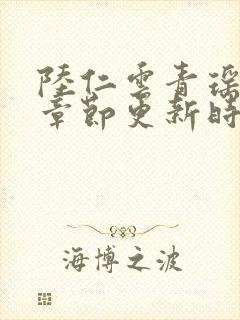 陸仁雲青瑶
章節更新時
海博之波